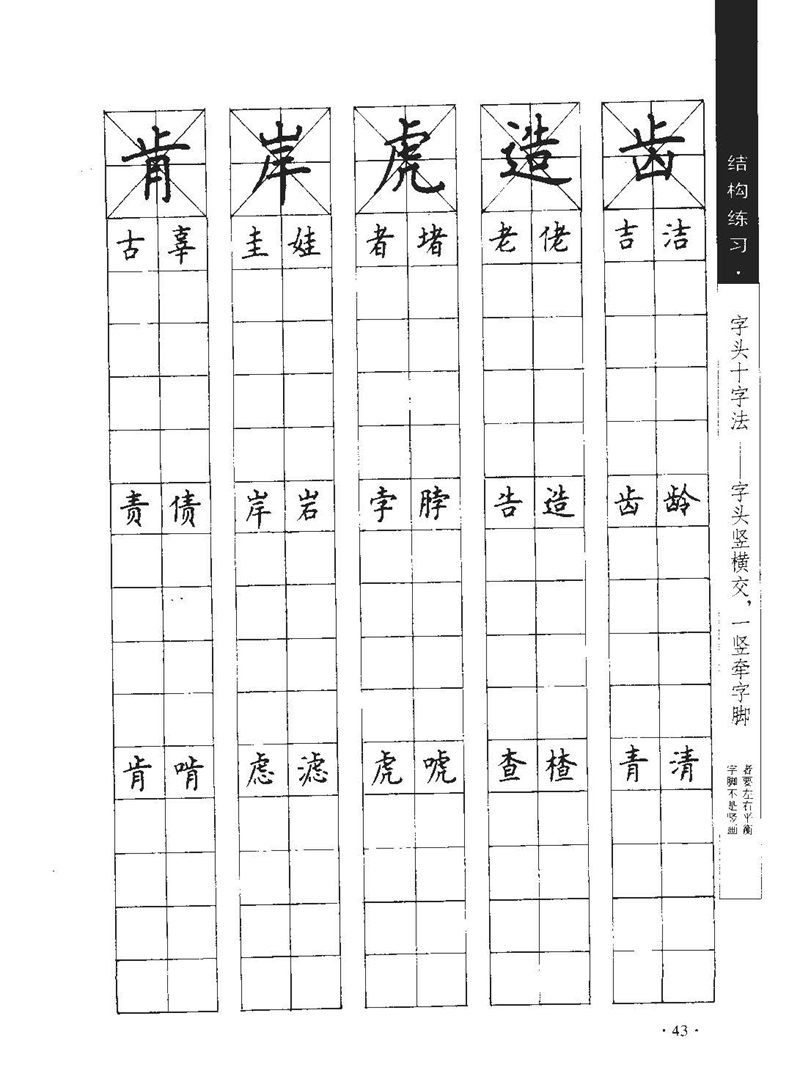 结构练习·
字头十字法——字头竖横交，一竖牵字脚
字脚不是竖画
者要左右平衡
肯 岸 虎 造 齿
古 辜 圭 娃 者 堵 老 佬 吉 洁
责 债 岸 岩 孛 脖 告 造 齿 龄
肯 啃 虑 滤 虎 唬 查 楂 青 清
·43·